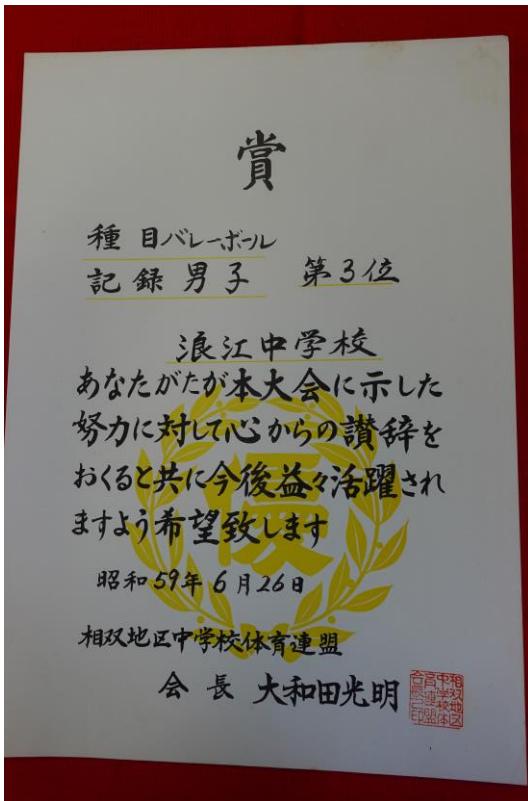 賞
種目バレーボール
記録男子 第3位
浪江中学校
あなたがたが本大会に示した
努力に対して心からの讃辞を
おくると共に今後益々活躍され
ますよう希望致します
優
昭和59年6月26日
相双地区中学校体育連盟
会長 大和田光明
相双地区
中学校体
育連盟
会長之印